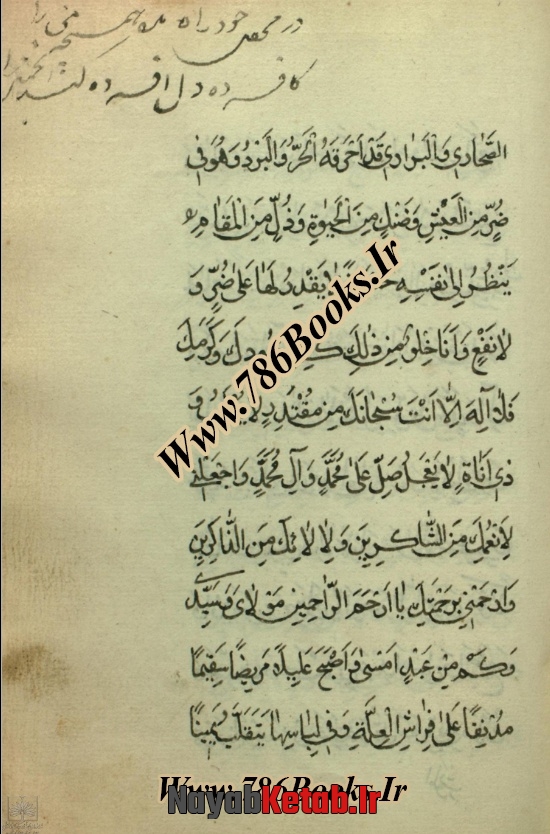 در محفل خود راه مده همچو منی را
کافسرده دل افسرده کند انجمنی را
الصَّحاري وَالْبَراري قَدْ اَحْرَقَهُ الْحَرُّ وَالْبَرْدُ وَهُوَ في
ضُرٍّ مِنَ الْعَيْشِ وَضَنْكٍ مِنَ الْحَيٰوةِ وَذُلٍّ مِنَ الْمَقامِ
يَنْظُرُ اِلىٰ نَفْسِهِ لا يَقْدِرُ لَها عَلىٰ ضُرٍّ وَ
لا نَفْعٍ وَاَنَا خِلْوٌ مِنْ ذٰلِكَ وَكَرَمِكَ
فَلا اِلٰهَ اِلّا اَنْتَ سُبْحانَكَ مِنْ مُقْتَدِرٍ لا يُغْلَبُ وَ
ذي اَناةٍ لا يَعْجَلُ صَلِّ عَلىٰ مُحَمَّدٍ وَآلِ مُحَمَّدٍ وَاجْعَلْني
لِاَنْعُمِكَ مِنَ الشّاكِرينَ وَلِاٰلائِكَ مِنَ الذّاكِرينَ
وَارْحَمْني بِرَحْمَتِكَ يا اَرْحَمَ الرّاحِمينَ مَوْلايَ وَسَيِّدي
وَكَمْ مِنْ عَبْدٍ اَمْسىٰ وَاَصْبَحَ عَليلاً مَريضاً سَقيماً
مُدْنِفاً عَلىٰ فِراشِ الْعِلَّةِ وَفي لِباسِها يَتَقَلَّبُ يَميناً
Www.786Books.Ir
Www.786Books.Ir
NayabKetab.Ir